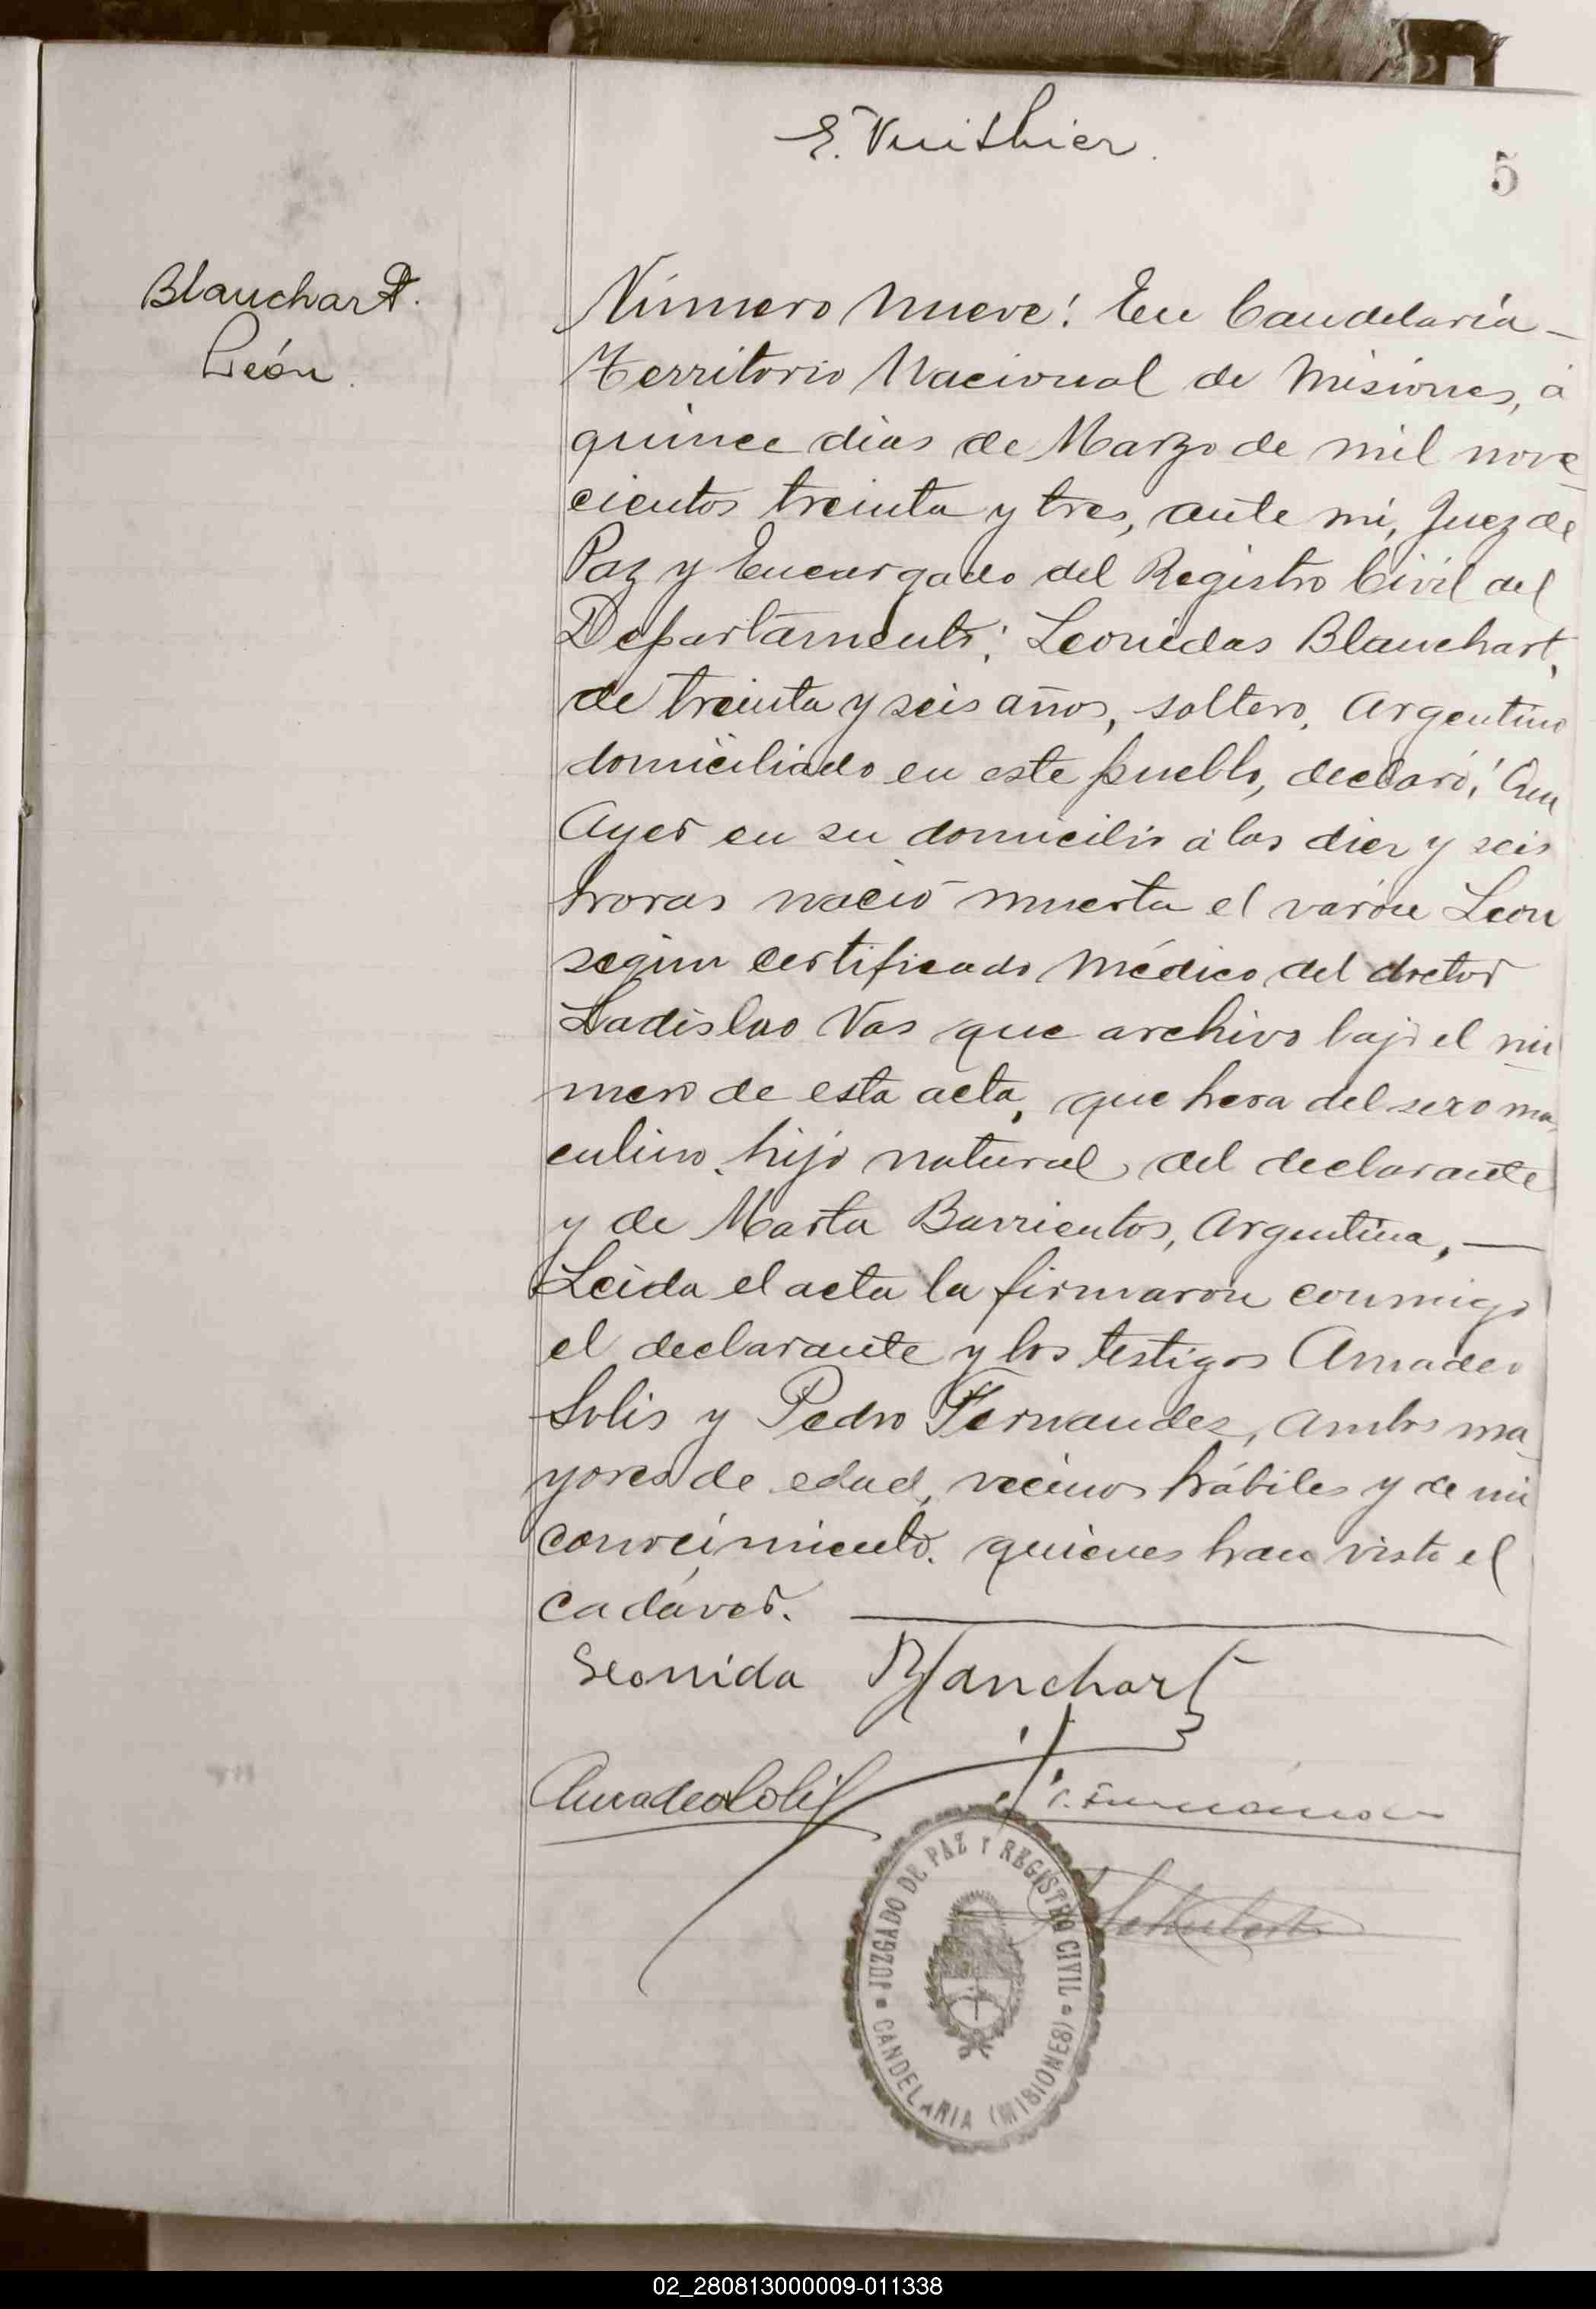 E. Vuithier.
5
Blanchart.
León.
Número nueve: En Candelaria
Territorio Nacional de Misiones, á
quince dias de Marzo de mil nove
cientos treinta y tres, ante mi, Juez de
Paz y Encargado del Registro Civil del
Departamento: Leonidas Blanchart,
de treinta y seis años, soltero, Argentino
domiciliado en este pueblo, declaró: Que
Ayer en su domicilio á las diez y seis
horas nació muerta el varón Leon
según certificado Médico del doctor
Ladislao Vas que archivo bajo el nú
mero de esta acta, que hera del sexo ma
culino, hijo natural, del declarante
y de Marta Barrientos, Argentina,
Leida el acta la firmaron conmigo
el declarante y los testigos Amadeo
Solis y Pedro Fernandez, ambos ma
yores de edad, vecinos hábiles y de mi
conocimiento. quienes han visto el
cadáver.
Leonida Blanchart
Amadeo Solis
JUZGADO DE PAZ Y REGISTRO CIVIL
CANDELARIA (MISIONES)
02_280813000009-011338